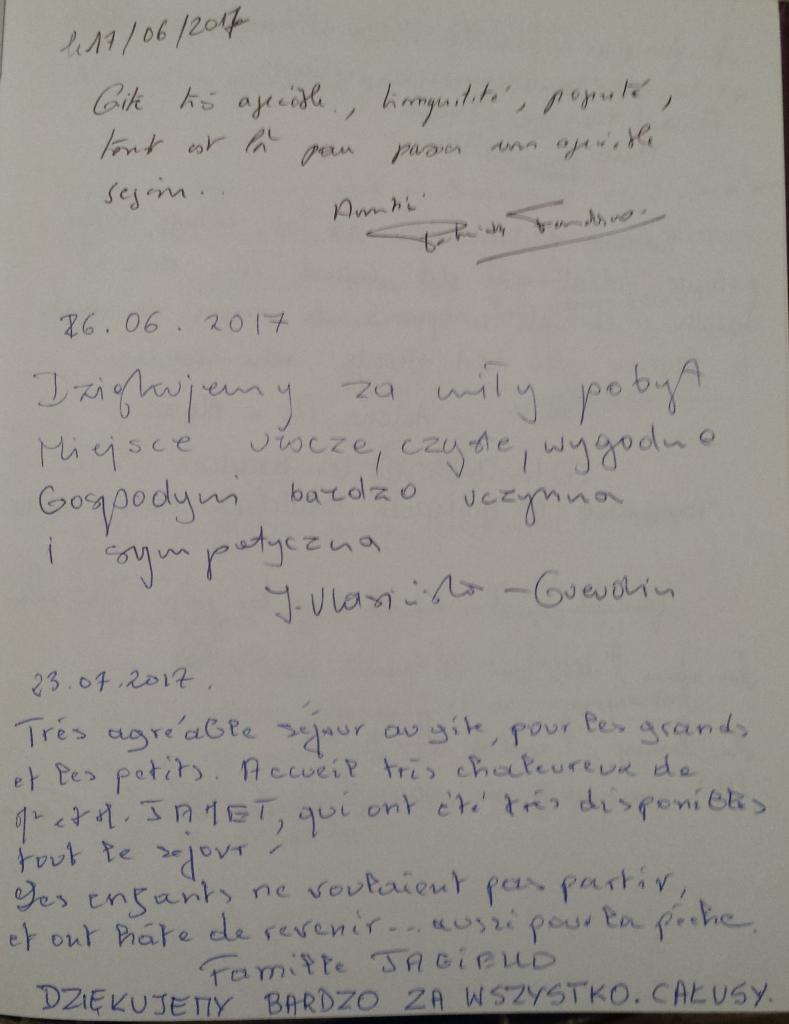 le 17/06/2017
Gite très agréable, tranquillité, propreté,
tout est là pour passer un agréable
séjour..
Amitié
26.06.2017
Dziękujemy za miły pobyt
Miejsce urocze, czyste, wygodne
Gospodyni bardzo uczynna
i sympatyczna
23.07.2017.
Très agréable séjour au gîte, pour les grands
et les petits. Accueil très chaleureux de
Mr et M. JAMET, qui ont été très disponibles
tout le séjour.
Les enfants ne voulaient pas partir,
et ont hâte de revenir... aussi pour la pêche.
Famille
DZIĘKUJEMY BARDZO ZA WSZYSTKO. CAŁUSY.